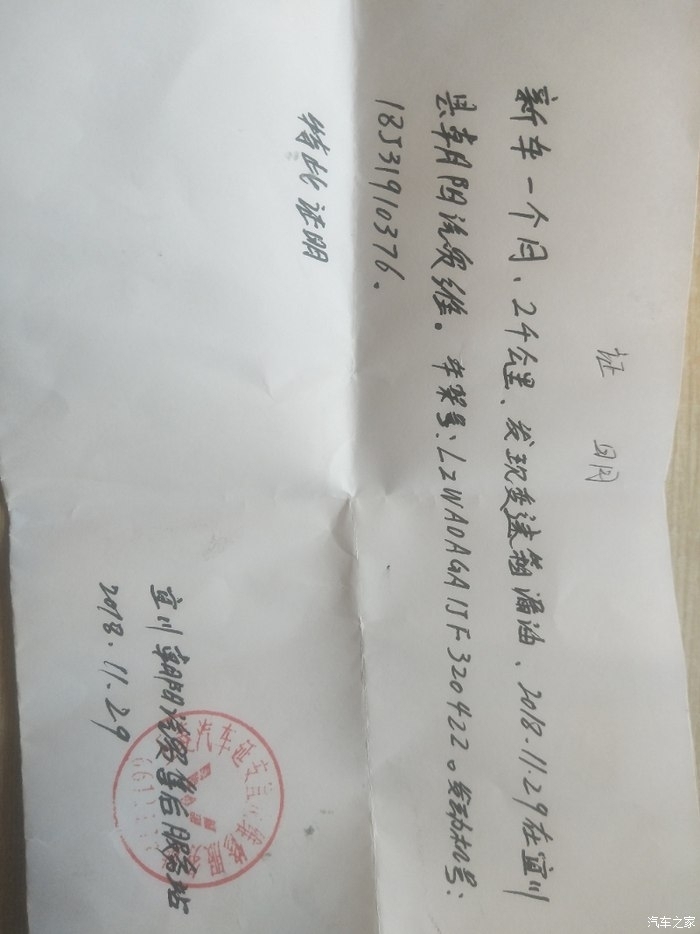 证 明
新车一个月、2千公里、发现变速箱漏油、2018.11.29在宜川
县朝阳汽贸维。车架号:LZWADAGA1JF320422。发动机号:
18J31910376.
特此证明
宜川朝阳汽贸售后服务站
2018.11.29
汽车之家